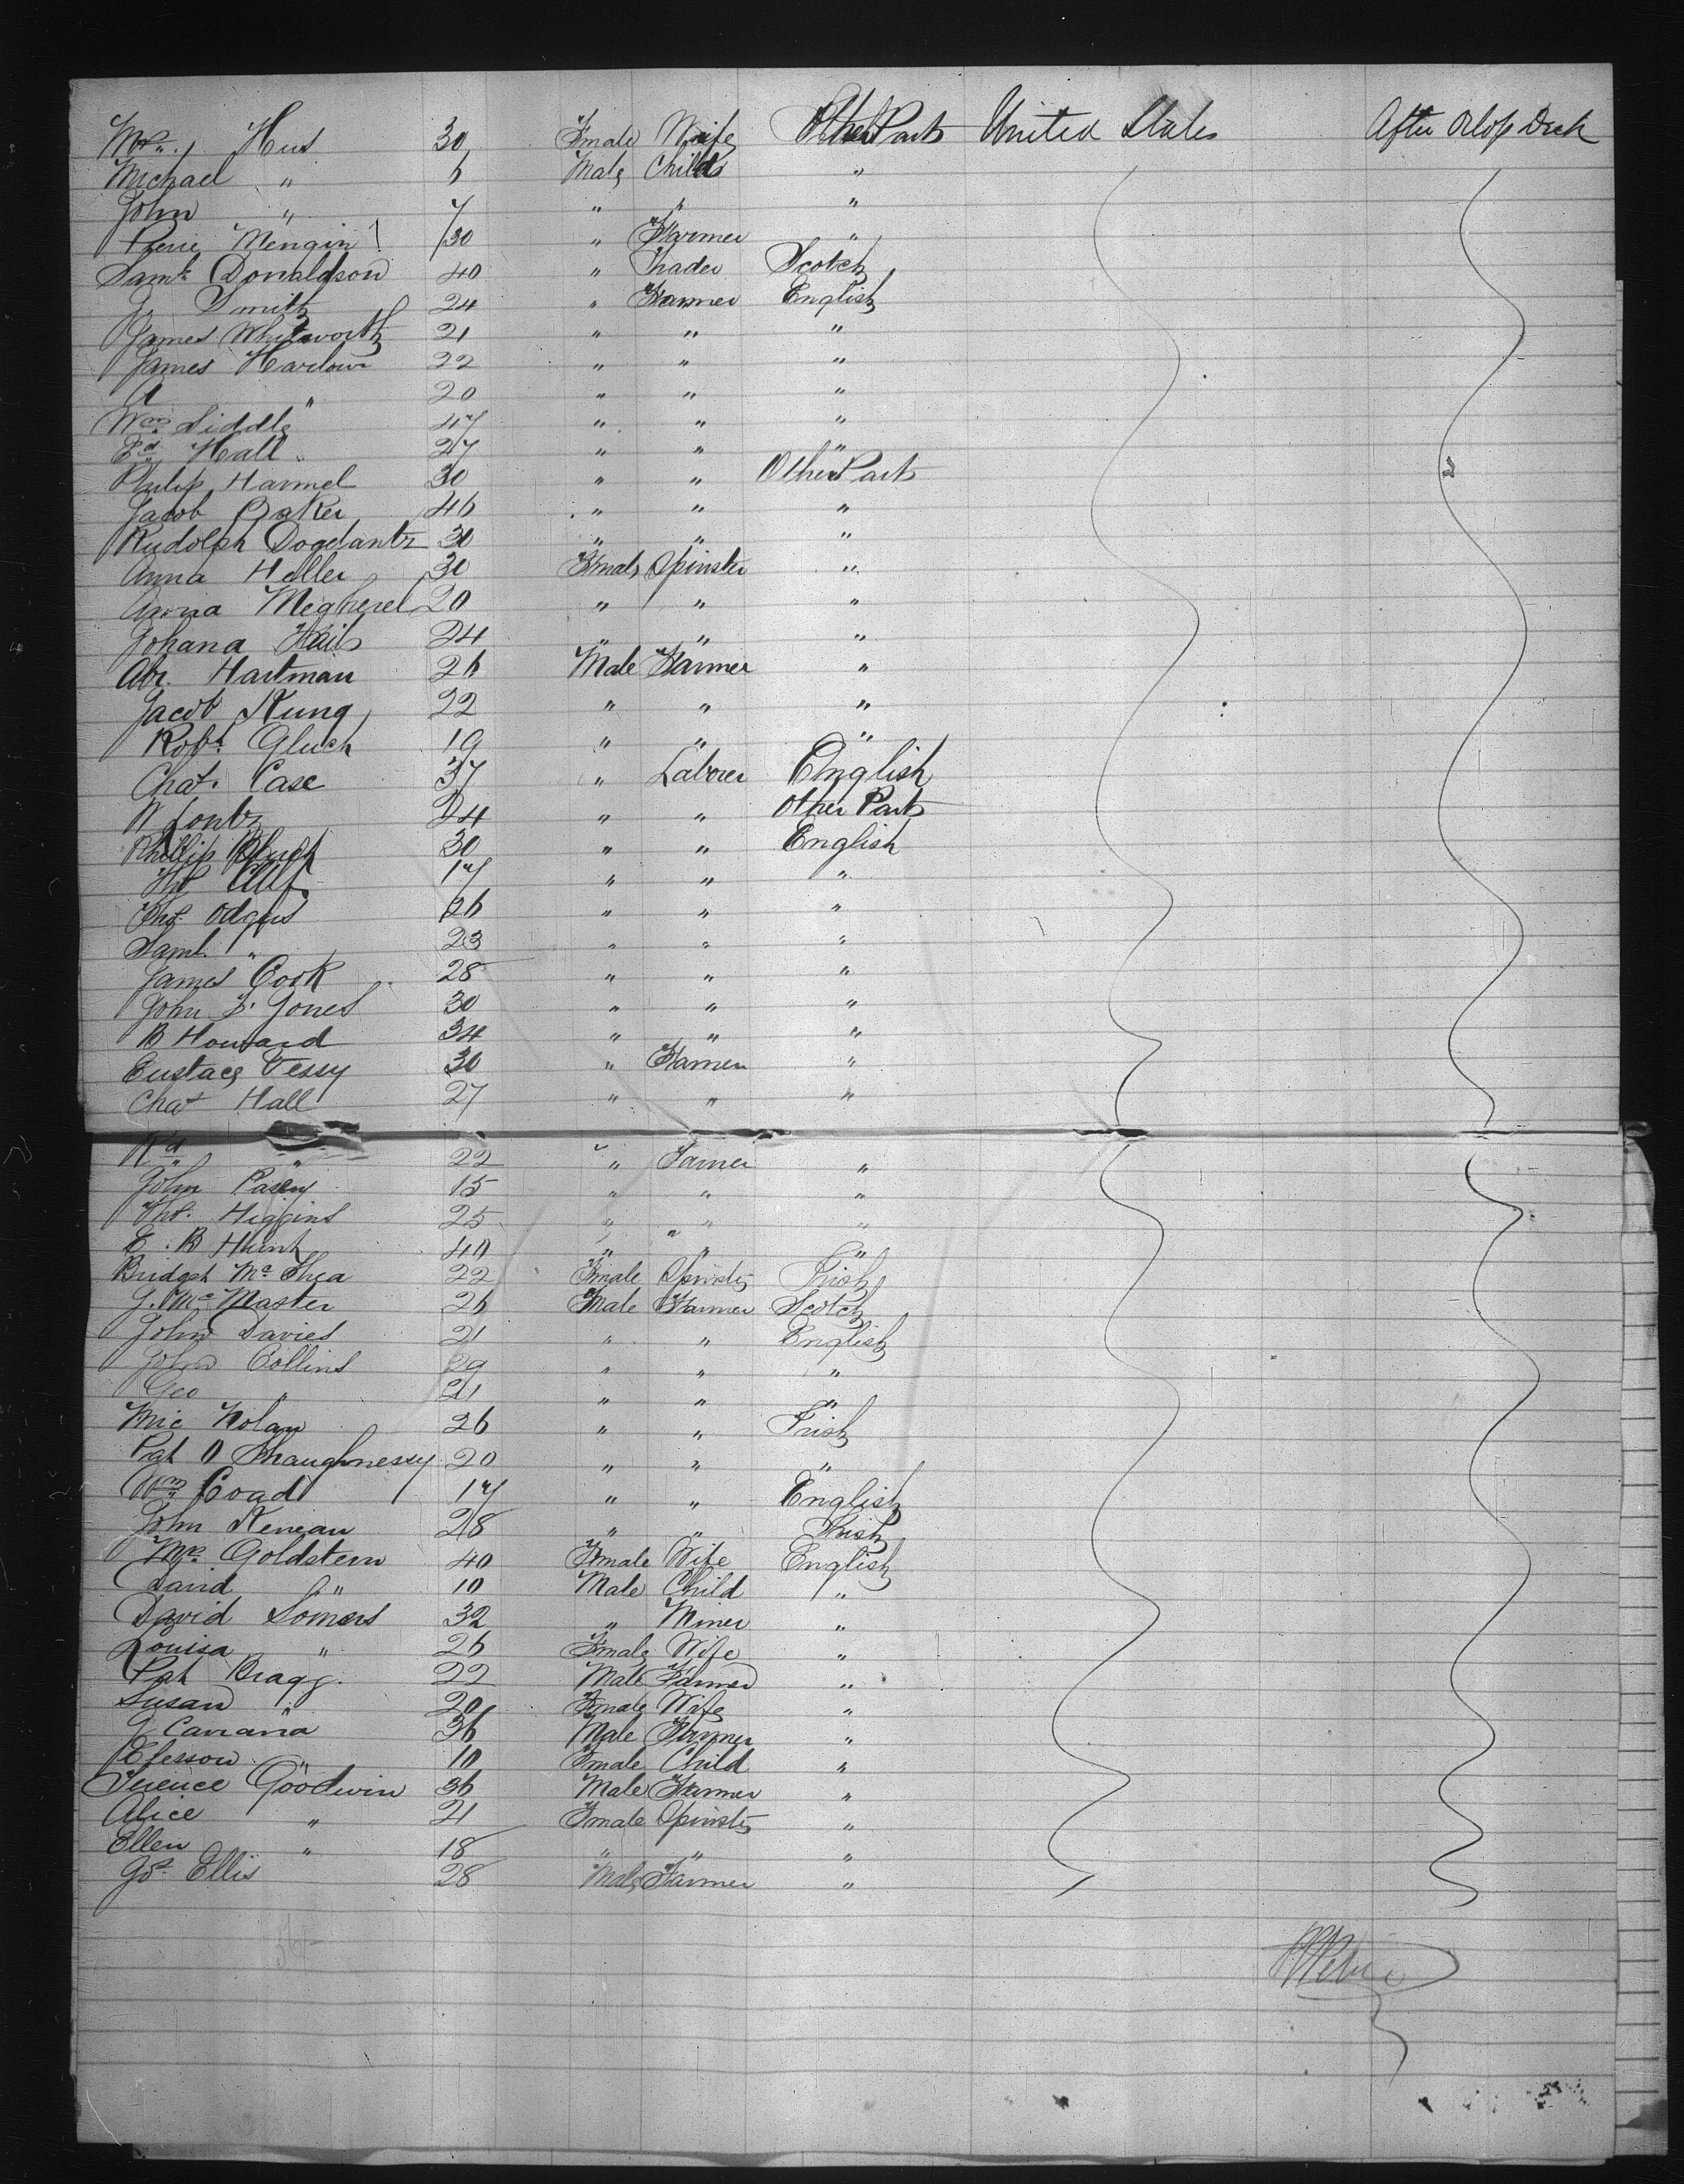 Mrs. Hus 30 Female Wife Other Parts United States After Orlop Deck
Michael " 6 Male Child "
John " 7 " " "
Mengin 30 " Farmer "
Saml. Donaldson 40 " Trader Scotch
J. Smith 24 " Farmer English
James Whitworth 21 " " "
James Harlow 22 " " "
A " 20 " " "
Wm. Siddle 47 " " "
Ed. Hall 27 " " "
Philip Harmel 30 " " Other Parts
Jacob Baker 46 " " "
Rudolph 30 " " "
Anna Heller 30 Female Spinster "
Anna 20 " " "
Johana 24 " " "
Abr. Hartman 26 Male Farmer "
Jacob Kung 22 " " "
Robt. Gluch 19 " " "
Chas. Case 37 " Laborer English
24 " " Other Parts
Phillip 30 " " English
17 " " "
Thos. Odgers 26 " " "
Saml. " 23 " " "
James Cook 28 " " "
John S. Jones 30 " " "
B Howard 34 " " "
Eustace Vessy 30 " Farmer "
Chas Hall 27 " " "
Rd " 22 " Farmer "
John Pasey 15 " " "
Thos. Higgins 25 " " "
E. B Hunt 40 " " "
Bridget Mc Shea 22 Female Spinster Irish
J. Mc Master 26 Male Farmer Scotch
John Davies 21 " " English
John Collins 29 " " "
Geo " 21 " " "
Mic Nolan 26 " " Irish
Pat O Shaughnessy 20 " " "
Wm Coad 17 " " English
John Keneau 28 " " Irish
Mrs. Goldstein 40 Female Wife English
David " 10 Male Child "
David Somers 32 " Miner "
Louisa " 26 Female Wife "
Pat Bragg 22 Male Farmer "
Susan " 20 Female Wife "
36 Male Farmer "
" 10 Female Child "
Terence Goodwin 36 Male Farmer "
Alice " 21 Female Spinster "
Ellen " 18 " " "
Jos. Ellis 28 Male Farmer "